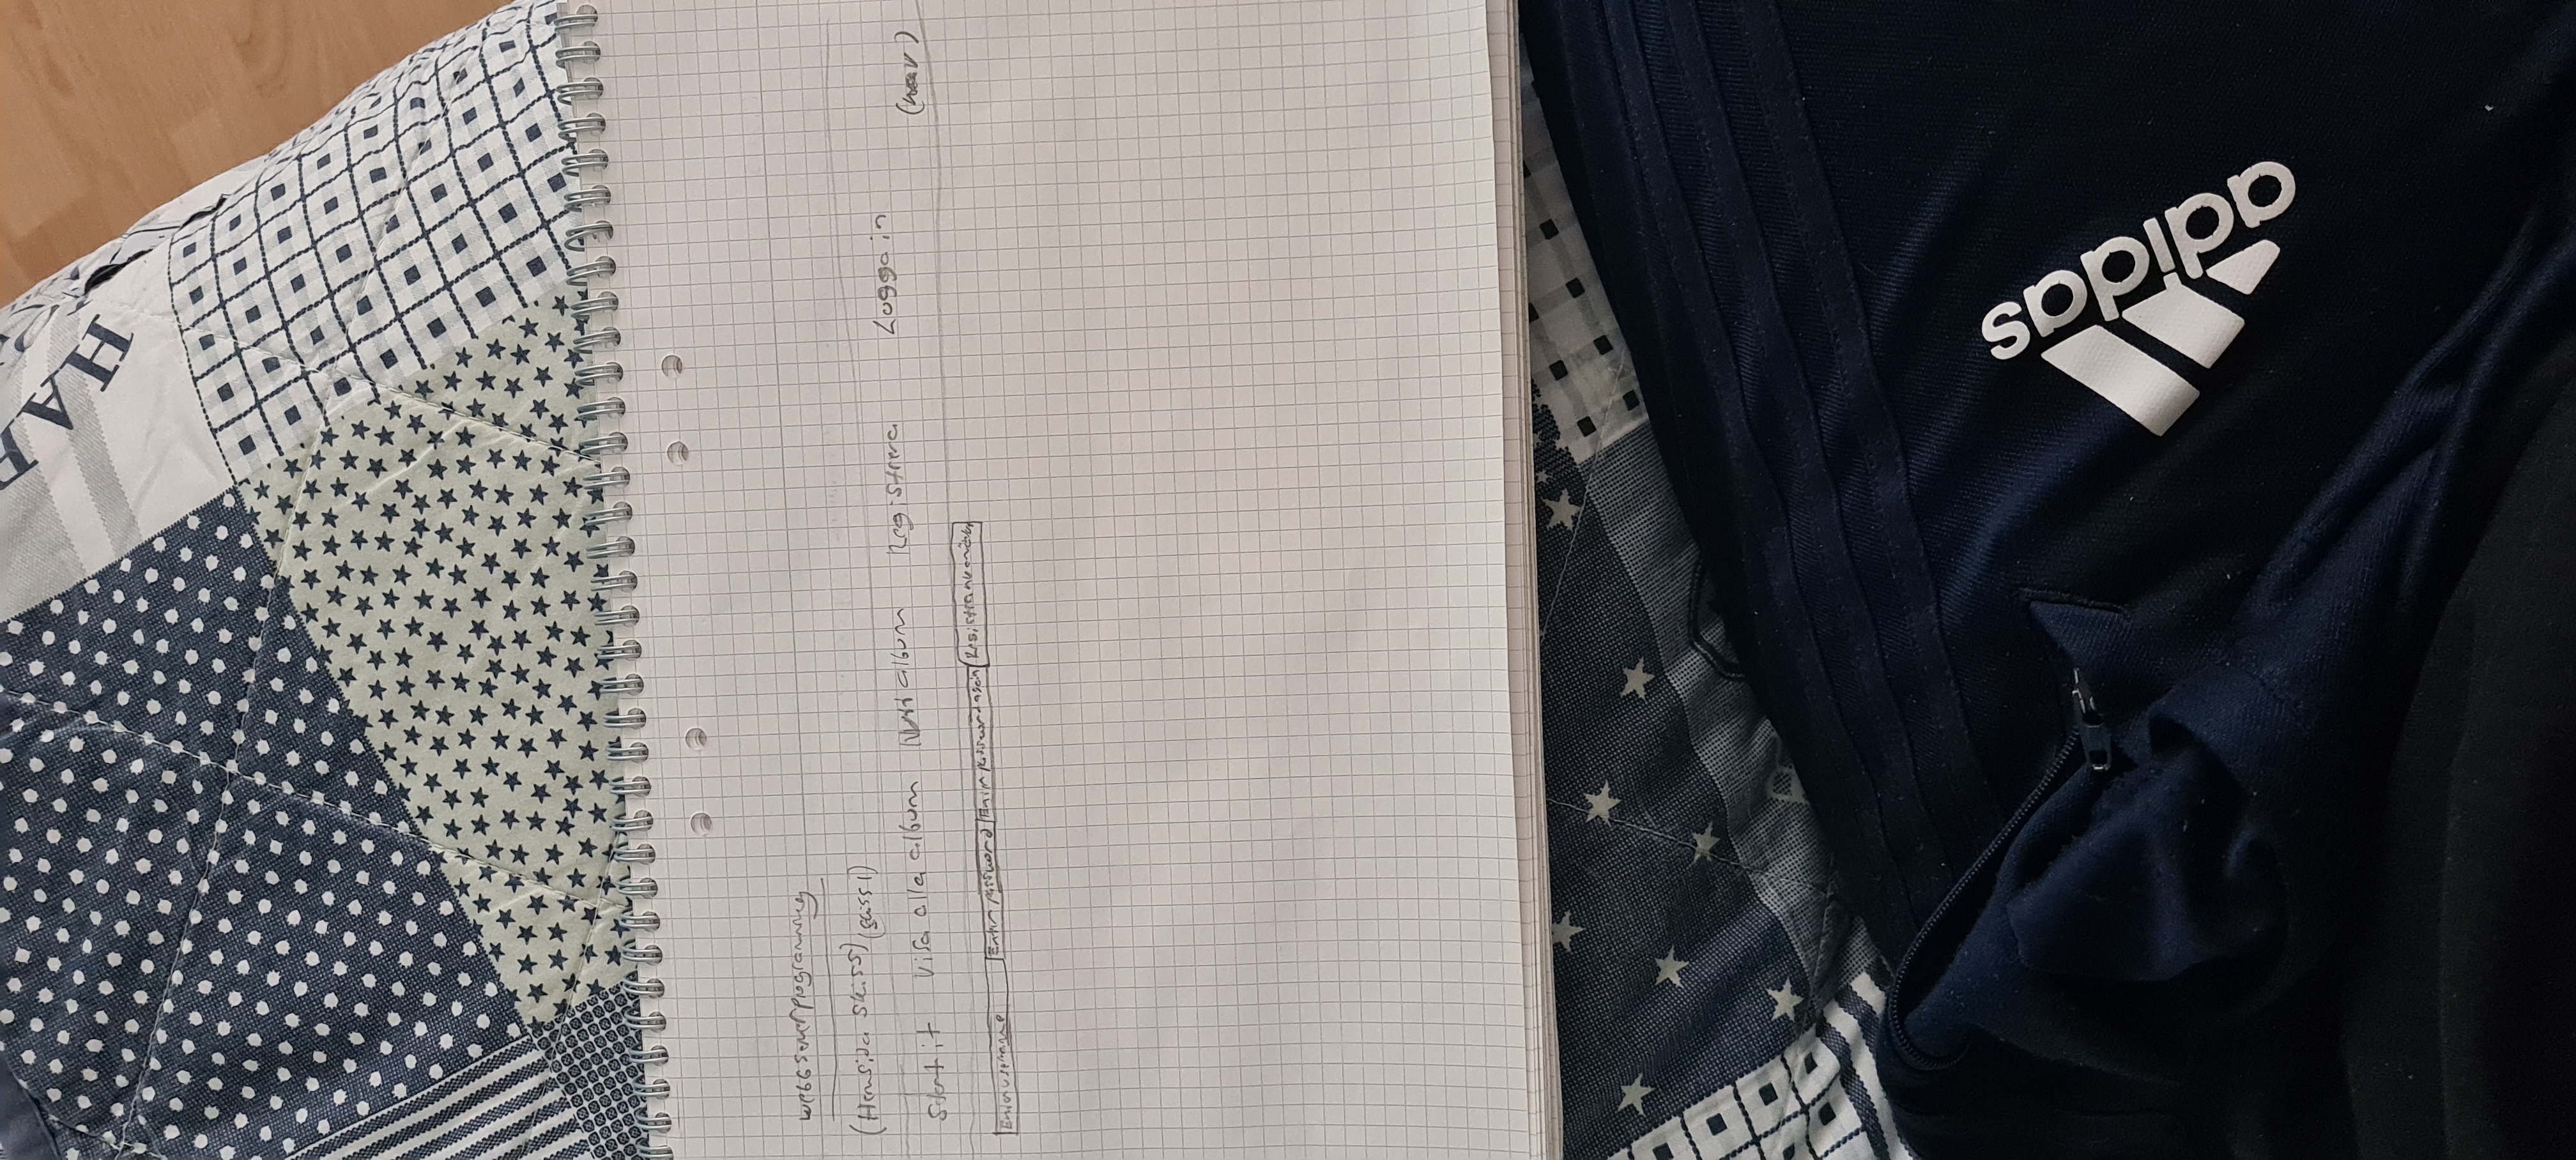 HAR
webbserverprogramming
(Hemsida skiss) (skiss 1)
Start it Visa alla album Nytt album Registrera Logga in (nav)
Enter username Enter password Enter password again Registrera användare
adidas